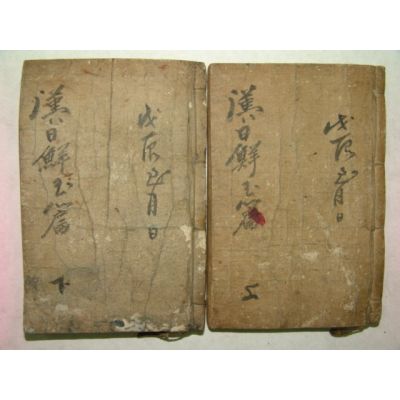 戊辰月日
漢日鮮玉篇 上
戊辰月日
漢日鮮玉篇 下